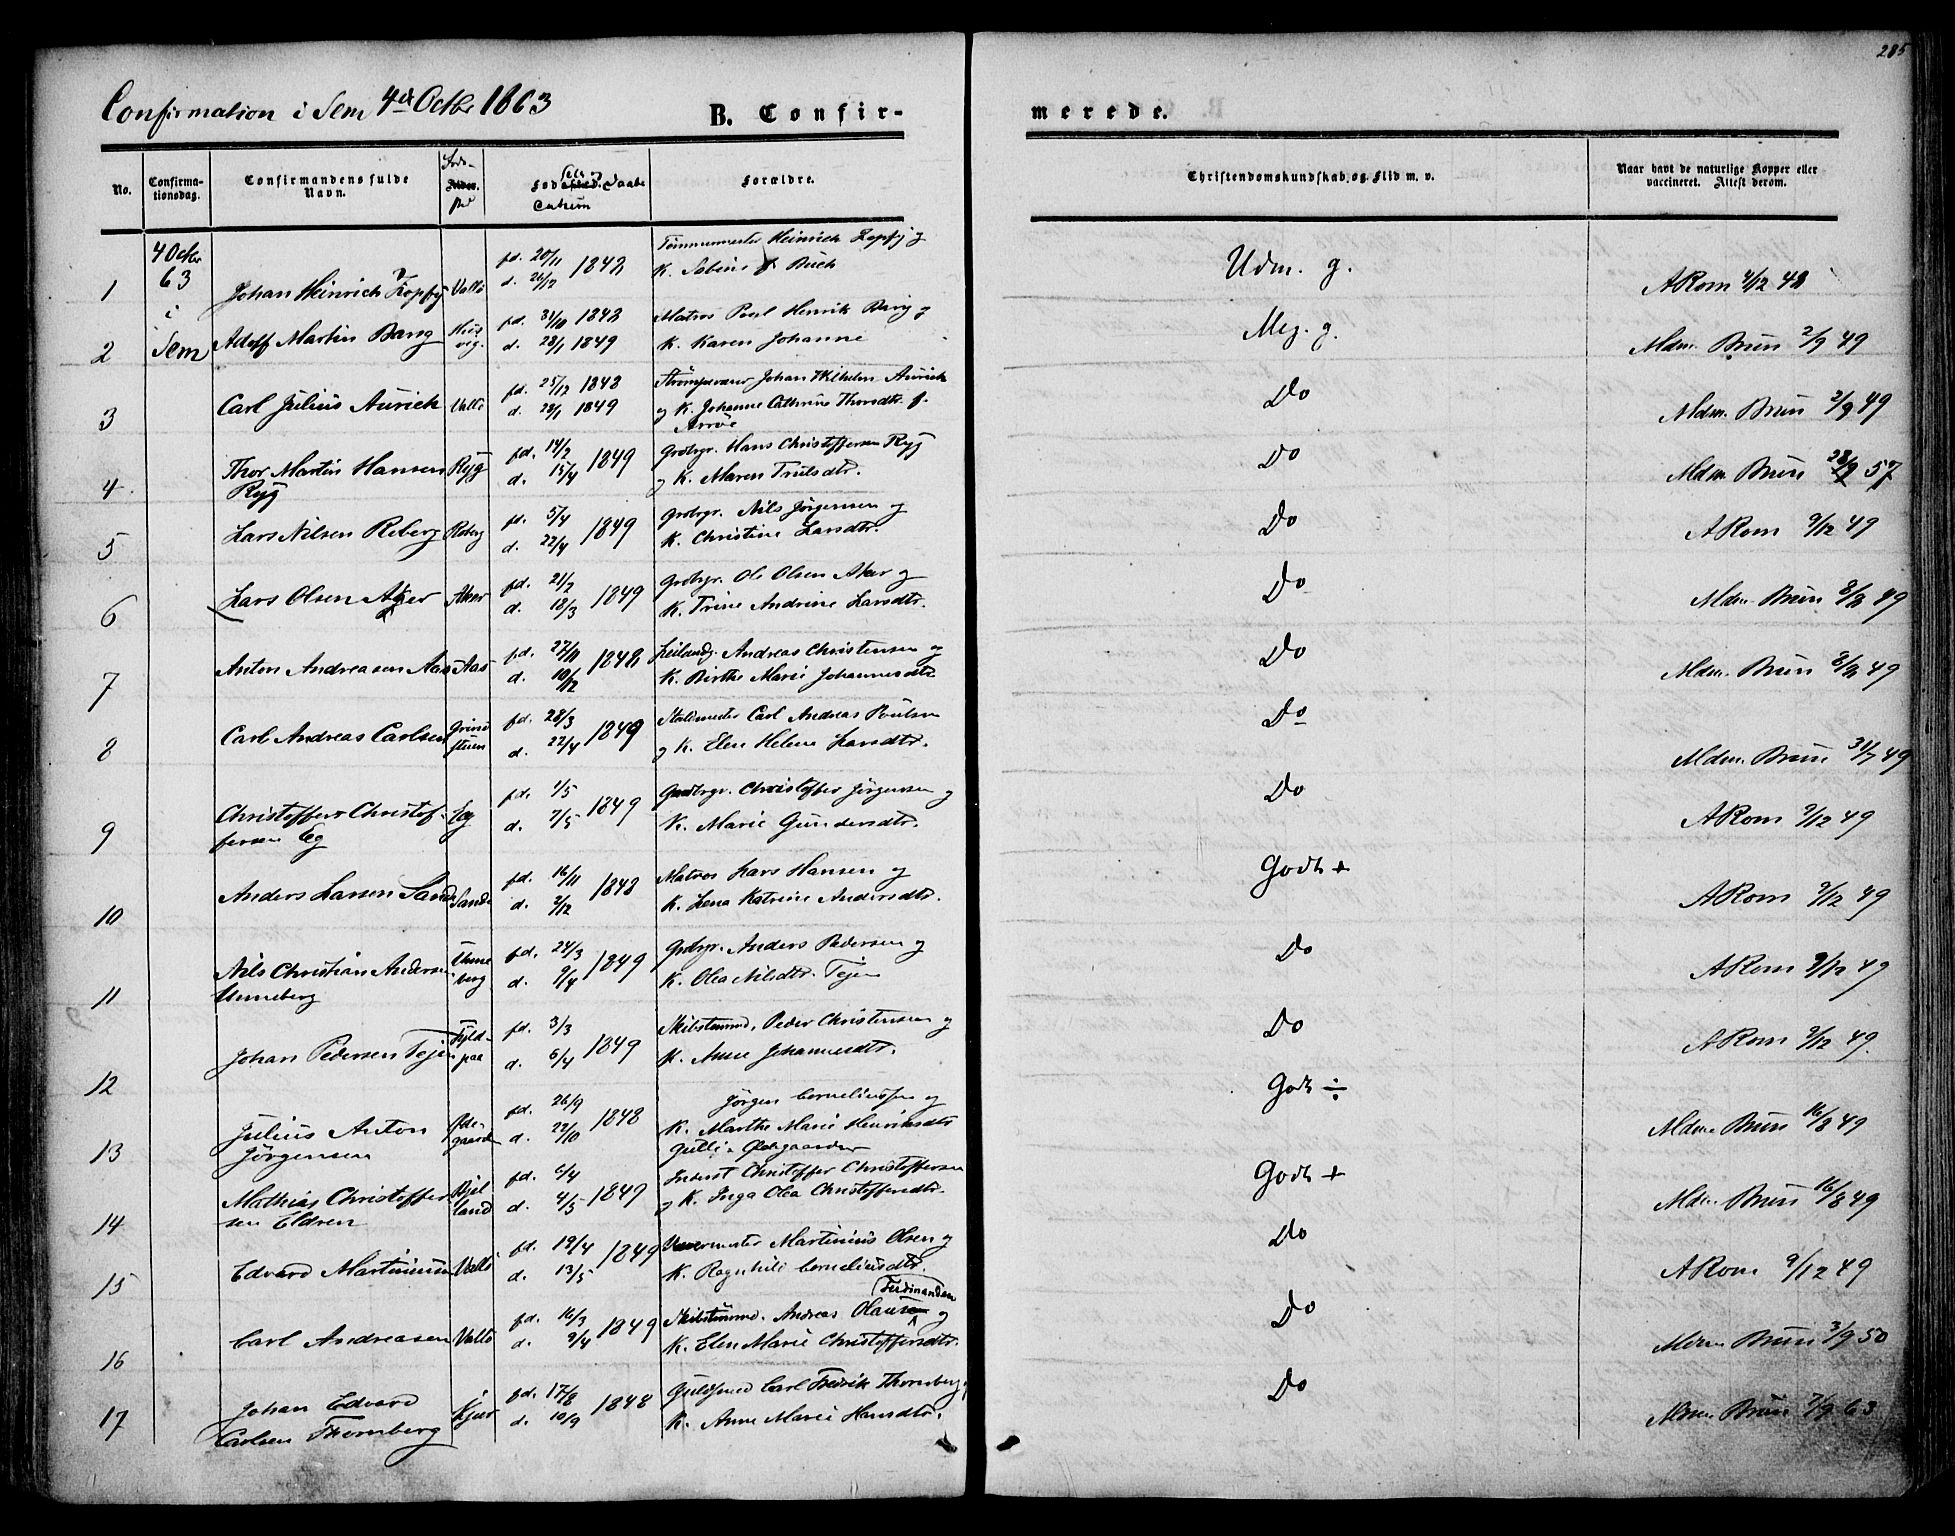 285
Confirmation i Sem 4de Octbr 1863
B. Confir-
merede.
No.
Confirma-
tionsdag.
Confirmandens fulde
Navn.
Føds-
Fødested. Daabs
Forældre.
Christendomskundskab, og Flid m. v.
Naar havt de naturlige Kopper eller
vaccineret. Attest derom.
4 Octbr
63
i
Sem
1 Johan Heinrich Zopfy Vallø
fd. 20/11 1848
d. 26/12
Tømmermester Heinrich Zopfy og
K. Sabine f. Buch
Udm. g.
A Rom 9/12 48
2 Adolf Martin Bang
fd. 31/10 1848
d. 28/1 1849
Matros Poul Henrik Bang og
K. Karen Johanne
Meg. g.
Mdm. Brun 2/9 49
3 Carl Julius Aurich Vallø
fd. 25/12 1848
d. 28/1 1849
Strømpevæver Johan Wilhelm Aurich
og K. Johanne Cathrine Thorsdtr. f.
Arrøe
Do
Mdm. Brun 2/9 49
4 Thor Martin Hansen Ryg
Ryg
fd. 14/2 1849
d. 15/4
Grdbrgr. Hans Christoffersen Ryg
og K. Maren Trulsdtr.
Do
Mdm Brun 28/9 57
5 Lars Nilsen Reberg Reberg
fd. 5/4 1849
d. 22/4
Grdbrgr. Nils Jörgensen og
K. Christine Larsdtr.
Do
A Rom 9/12 49
6 Lars Olsen Aker Aker
fd. 21/2 1849
d. 18/3
Grdbrgr. Ole Olsen Aker og
K. Trine Andrine Larsdtr.
Do
Mdm. Brun 8/8 49
7 Anton Andreasen Aas Aas
fd. 27/11 1848
d. 10/12
Leilændg. Andreas Christensen og
K. Birthe Marie Johannesdtr
Do
Mdm. Brun 8/8 49
8 Carl Andreas Carlsen Grind
stuen
fd. 28/3 1849
d. 22/4
Staldmester Carl Andreas Poulsen
og K. Elen Helene Larsdtr.
Do
Mdm. Brun 31/7 49
9 Christoffer Christof-
fersen Eg
Eg
fd. 1/5 1849
d. 7/5
Grdbrgr. Christoffer Jörgensen og
K. Marie Gundersdtr.
Do
A Rom 9/12 49
10 Anders Larsen Sande Sande
fd. 16/11 1848
d. 3/12
Matros Lars Hansen og
K. Lena Katrine Andersdtr.
Godt +
A Rom 9/12 49
11 Nils Christian Andersen
Unneberg
Unne
berg
fd. 24/3 1849
d. 9/4
Grdbrgr. Anders Pedersen og
K. Olea Nilsdtr. Tejen
Do
A Rom 9/12 49
12 Johan Pedersen Tejen Fyld-
paa
fd. 3/3 1849
d. 6/4
Skibstømmd. Peder Christensen og
K. Anne Johannesdtr.
Do
A Rom 9/12 49.
13 Julius Anton
Jörgensen
Øde-
gaard
fd. 26/9 1848
d. 22/10
Jörgen Corneliussen og
K. Marthe Marie Henriksdtr
Gulli Ødegaarden
Godt ÷
Mdm Brun 16/8 49
14 Mathias Christoffer
sen Eldren
Bjel
land
fd. 6/4 1849
d. 4/5
Inderst Christoffer Christoffersen
og K. Inga Olea Christoffersdtr.
Godt +
Mdm Brun 16/8 49
15 Edvard Martinusen Vallø
fd. 19/4 1849
d. 13/5
Martinius Olsen og
K. Ragnhild Corneliusdtr.
Do
A Rom 9/12 49
16 Carl Andreasen Vallø
fd. 16/3 1849
d. 9/4
Ferdinandsen
Skibstømmd. Andreas Olausen og
K. Elen Marie Christoffersdtr.
Do
Mdm Brun 3/9 50
17 Johan Edvard
Carlsen Thornberg
Kjær
fd. 17/8 1848
d. 10/9
Guldsmed Carl Fredrik Thornberg og
K. Anne Marie Hansdtr.
Do
Mdm Brun 7/9 63